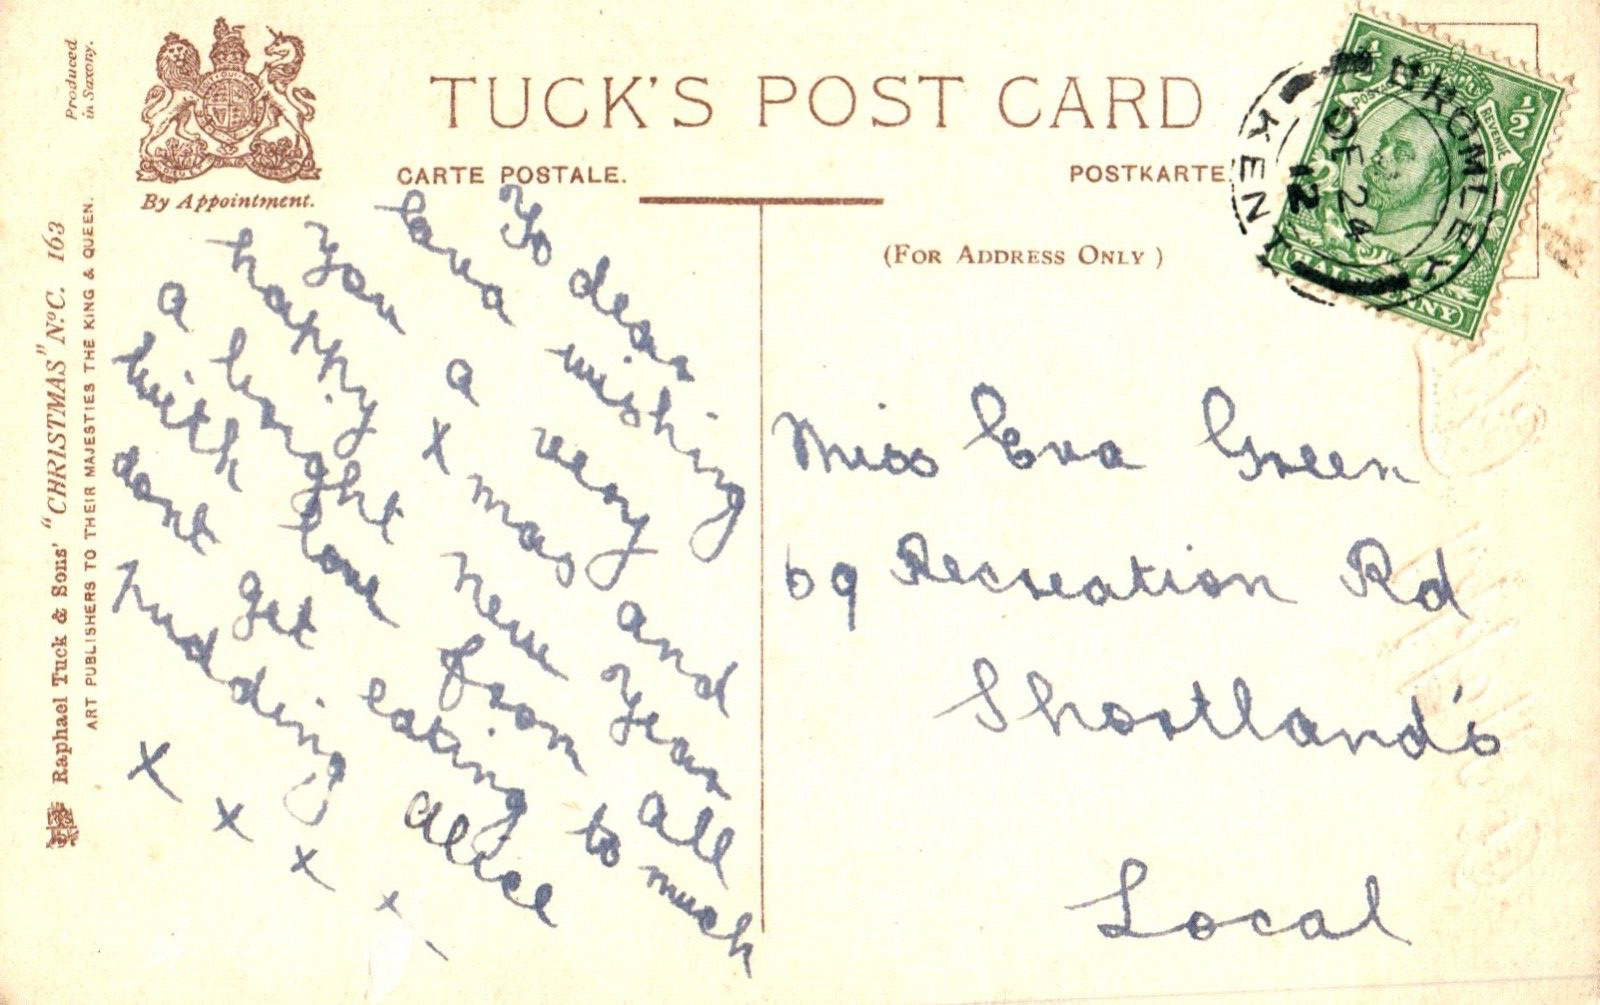 Produced
in Saxony.
By Appointment.
TUCK'S POST CARD
CARTE POSTALE.
POSTKARTE
(FOR ADDRESS ONLY)
Raphael Tuck & Sons' "CHRISTMAS" No C. 163
ART PUBLISHERS TO THEIR MAJESTIES THE KING & QUEEN.
BROMLEY
KENT
DE 24
12
½
½
POSTAGE
REVENUE
HALFPENNY
To dear
Eva wishing
You a very
happy Xmas and
a bright New Year
with love from all
dont get eating to much
pudding Alice
x x x x
Miss Eva Green
69 Recreation Rd
Shortland's
Local